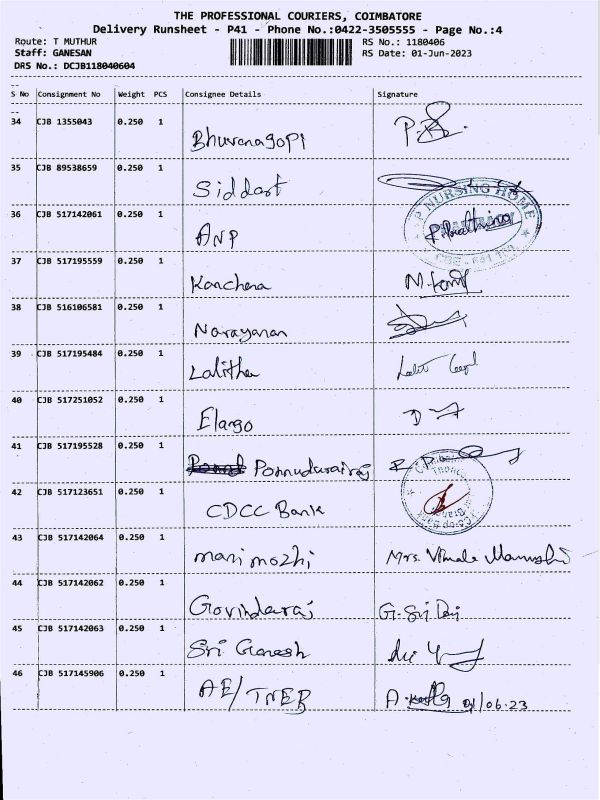 THE PROFESSIONAL COURIERS, COIMBATORE
Delivery Runsheet - P41 - Phone No.:0422-3505555 - Page No.:4
Route: T MUTHUR RS No.: 1180406
Staff: GANESAN RS Date: 01-Jun-2023
DRS No.: DCJB118040604
S No Consignment No Weight PCS Consignee Details Signature
34 CJB 1355043 0.250 1 Bhuvanagopi
35 CJB 89538659 0.250 1 Siddart
36 CJB 517142061 0.250 1 ANP NURSING HOME
37 CJB 517195559 0.250 1 Kanchena
38 CJB 516106581 0.250 1 Narayanan
39 CJB 517195484 0.250 1 Lalitha
40 CJB 517251052 0.250 1 Elango
41 CJB 517195528 0.250 1 Ponnudurairaj
42 CJB 517123651 0.250 1 CDCC Bank
43 CJB 517142064 0.250 1 mani mozhi Mrs. Vimala
44 CJB 517142062 0.250 1 Govindaraj G. Sri Devi
45 CJB 517142063 0.250 1 Sri Ganesh
46 CJB 517145906 0.250 1 AE/TNEB 01/06.23